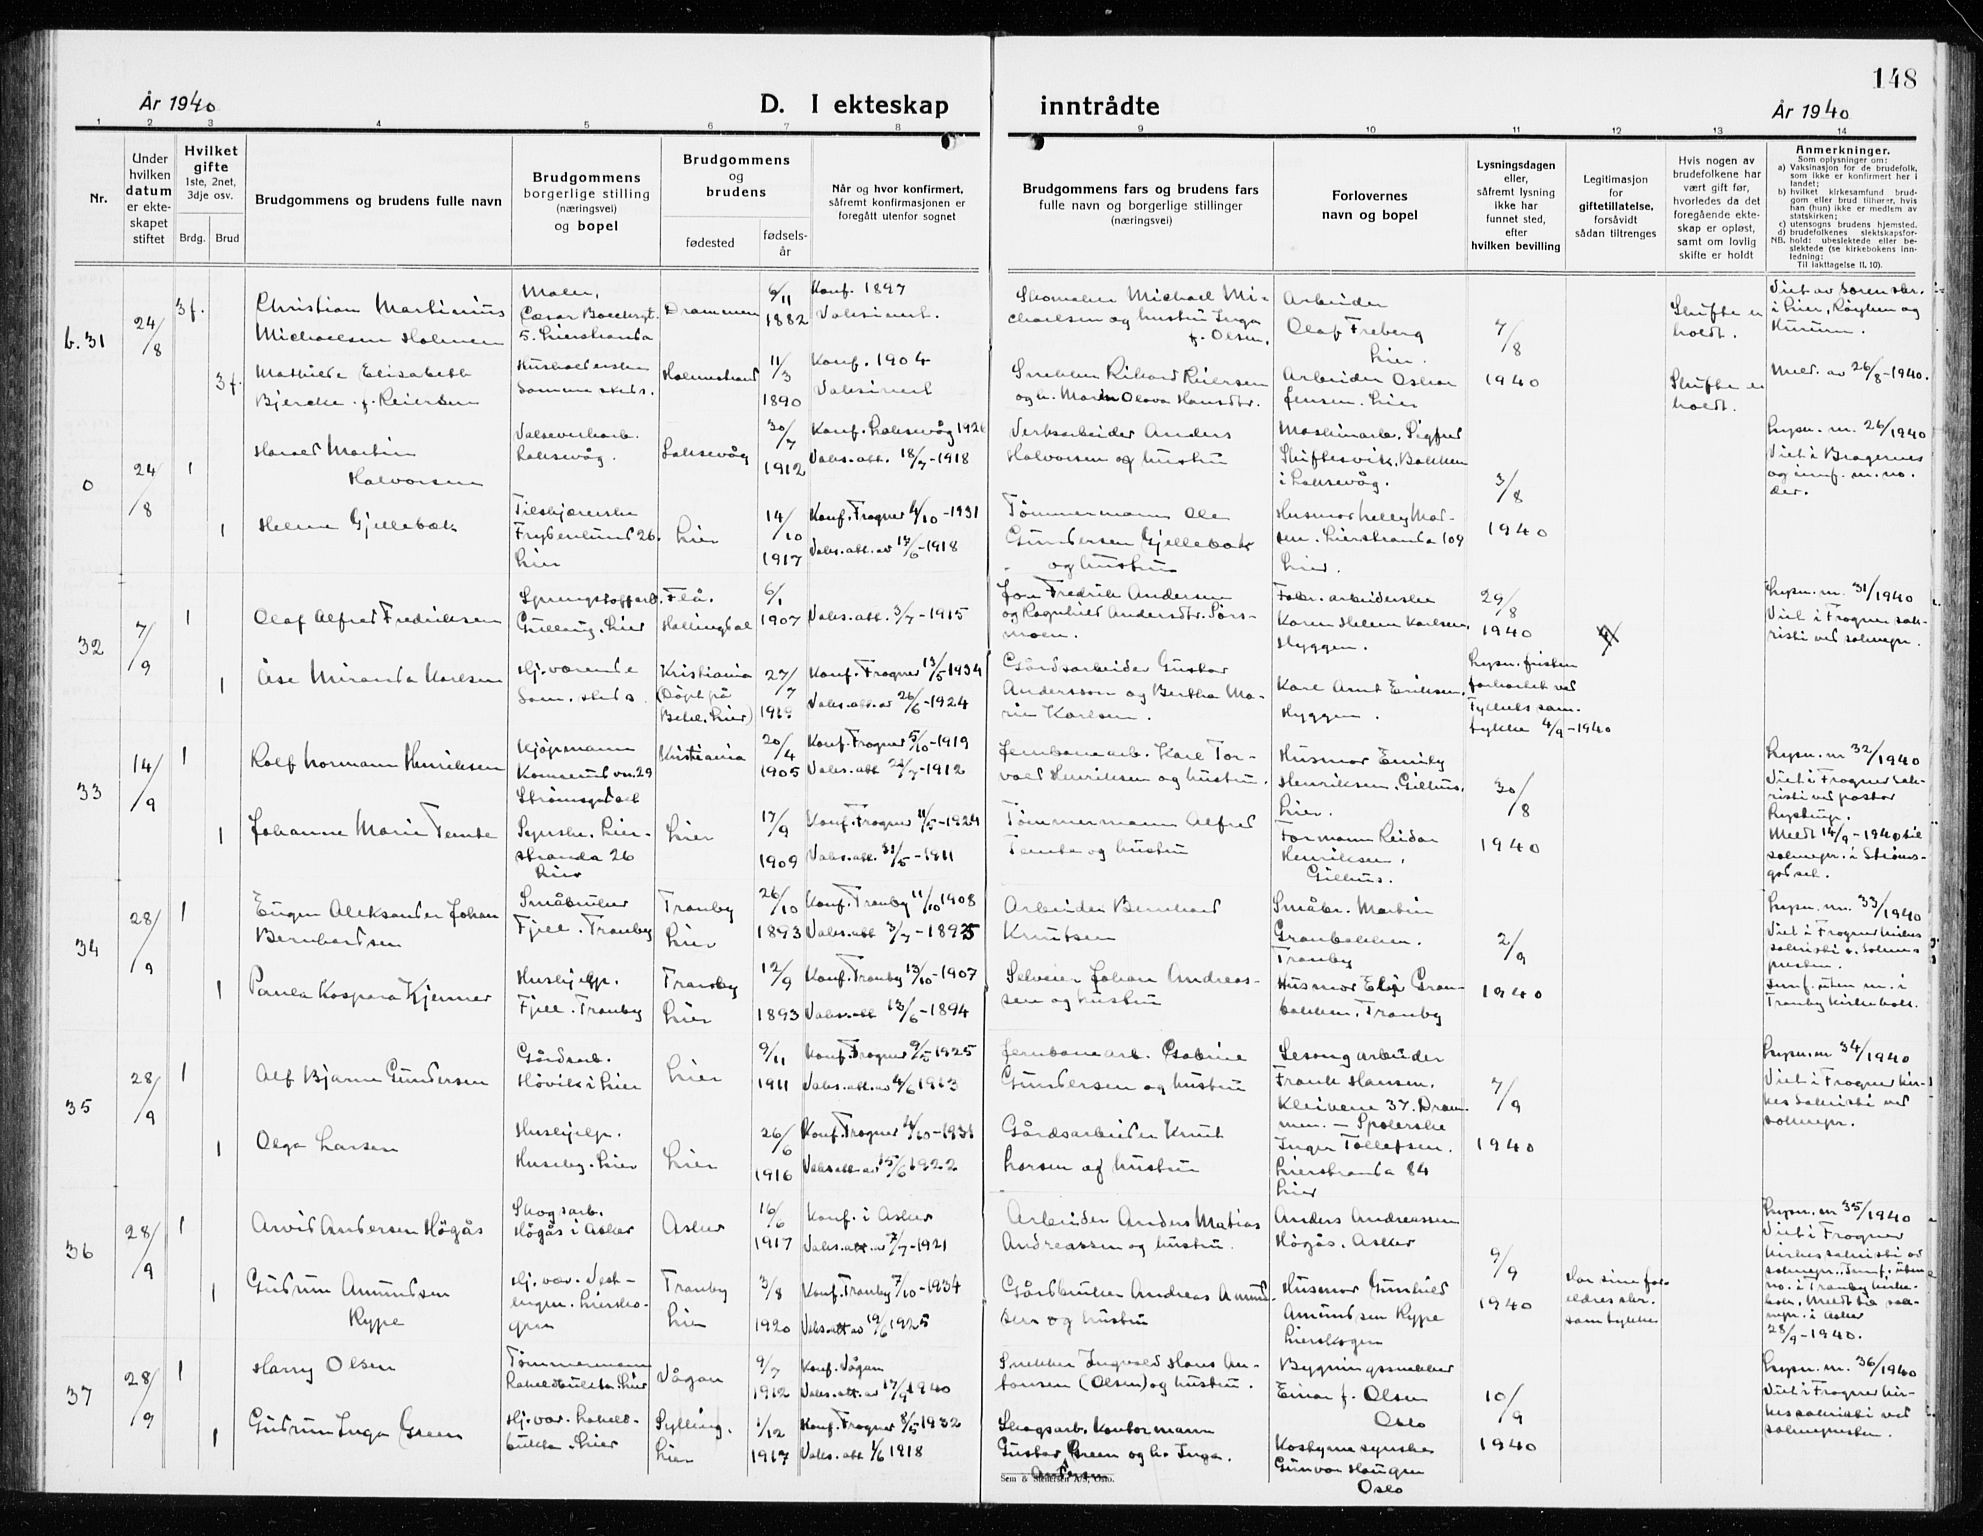 148
År 1940
D. I ekteskap inntrådte
År 1940
1 2 3 4 5 6 7 8 9 10 11 12 13 14
Nr.
Under hvilken datum er ekteskapet stiftet
Hvilket gifte
1ste, 2net, 3dje osv.
Brdg. Brud
Brudgommens og brudens fulle navn
Brudgommens borgerlige stilling (næringsvei) og bopel
Brudgommens og brudens
fødested
fødselsår
Når og hvor konfirmert, såfremt konfirmasjonen er foregått utenfor sognet
Brudgommens fars og brudens fars fulle navn og borgerlige stillinger (næringsvei)
Forlovernes navn og bopel
Lysningsdagen eller, såfremt lysning ikke har funnet sted, efter hvilken bevilling
Legitimasjon for giftetillatelse, forsåvidt sådan tiltrenges
Hvis nogen av brudefolkene har vært gift før, hvorledes da det foregående ekteskap er opløst, samt om lovlig skifte er holdt
Anmerkninger.
Som oplysninger om:
a) Vaksinasjon for de brudefolk, som ikke er konfirmert her i landet;
b) hvilket kirkesamfund brudgom eller brud tilhører, hvis han (hun) ikke er medlem av statskirken;
c) utensogns brudens hjemsted.
d) brudefolkenes slektskapsforhold: ubeslektede eller beslektede (se kirkebokens innledning:
Til iakttagelse II. 10).
b. 31
24/8
3 f.
Christian Martinius
Michaelsen Holmen
Maler,
5. Lierstranda
Drammen
6/11
1882
Konf. 1897
Vaksinert.
Skomaker Michael Michaelsen og hustru Inga
f. Olsen.
Arbeider
Olaf Freberg
Lier.
7/8
1940
Skifte er
holdt.
Viet av Sorenskr.
i Lier, Røyken og
Hurum.
3 f.
Mathilde Elisabeth
Bjercke f. Reiersen
Samme steds.
Holmestrand
11/3
1890
Konf. 1904
Vaksinert
Snekker Rikard Reiersen
og h. Maren Olava Hansdtr.
Arbeider Oskar
Jensen. Lier
Skifte er
holdt.
Meld. av 26/8-1940.
0
24/8
1
Harald Martin
Halvorsen
Valseverkarb.
Laksevåg.
Laksevåg
30/7
1912
Konf. Laksevåg 1926
Vaks.att. 18/7-1918
Verksarbeider Anders
Halvorsen og hustru
Maskinarb. Sigfred
Skiftesvik, Bakken
i Laksevåg.
3/8
1940
Lysn. nr. 26/1940
Viet i Bragernes
og innf. m. no.
der.
1
Helene Gjellebæk
Frydenlund 26.
Lier
Lier
14/10
1917
Konf. Frogner 4/10-1931
Vaks.att. av 13/6-1918
Tømmermann Ole
Gundersen Gjellebæk
og hustru
Husmor Nelly Madsen. Lierstranda 109
Lier.
32
7/9
1
Olaf Alfred Fredriksen
Sprengstoffarb.
Gullaug. Lier
Flå.
Hallingdal
6/1
1907
Vaks.att. 3/7-1915
Jon Fredrik Andersen
og Ragnhild Andersdtr. Sørsmoen.
Fabr. arbeiderske
Karen Helene Karlsen,
Hyggen.
29/8
1940
Lysn. fristen
forkortet ved
Fylkets samtykke 4/9-1940
Lysn. nr. 31/1940
Viet i Frogner sakristi ved soknepr.
1
Åse Miranda Karlsen
Hj. værende
Sam. steds
Kristiania
(Døpt på
Betel, Lier)
27/7
1919
Konf. Frogner 13/5-1934
Vaks.att. av 26/6-1924
Gårdsarbeider Gustav
Andersson og Bertha Marie Karlsen.
Karl Arnt Eriksen,
Hyggen.
33
14/9
1
Rolf Normann Henriksen
Kjøpmann
Konnerud vn. 29
Strømsgodset
Kristiania
20/4
1905
Konf. Frogner 5/10-1919
Vaks.att 22/7-1912
Jernbanearb. Karl Torvald Henriksen og hustru.
Husmor Emily
Henriksen, Gilhus,
Lier.
30/8
1940
Lysn. nr 32/1940
Viet i Frogner sakristi ved pastor
Rystrup.
Meldt 14/9-1940 til
soknepr. i Strømsgodset.
1
Johanne Marie Temte
Syerske. Lierstranda 26
Lier
Lier
17/9
1909
Konf. Frogner 11/5-1924
Vaks.att. 31/5-1911
Tømmermann Alfred
Temte og hustru
Formann Reidar
Henriksen,
Gilhus.
34
28/9
1
Eugen Aleksander Johan
Bernhardsen
Småbruker
Fjell. Tranby
Tranby
Lier
26/10
1893
Konf. Tranby 11/10 1908
Vaks.att 3/7-1895
Arbeider Bernhard
Knutsen
Småbr. Martin
Granbakken.
Tranby
2/9
1940
Lysn. nr. 33/1940
Viet i Frogner kirkes
sakristi v. soknepresten.
Innf. uten nr. i
Tranby kirkebok.
1
Paula Kaspara Kjenner
Hushjelp.
Fjell. Tranby
Tranby
Lier
12/9
1893
Konf. Tranby 13/10-1907
Vaks.att 13/6-1894
Selveier Johan Andreassen og hustru
Husmor Elip Granbakken, Tranby
35
28/9
1
Alf Bjarne Gundersen
Gårdsarb.
Høvik i Lier
Lier
9/11
1911
Konf. Frogner 9/5-1925
Vaks.att. av 4/6 1913
Jernbanearb. Gabriel
Gundersen og hustru
Sesongarbeider
Frank Hansen.
Kleivene 37. Drammen. — Spolerske
Inger Tollefsen.
Lierstranda 84
Lier
7/9
1940
Lysn. nr 34/1940
Viet i Frogner kirkes sakristi ved
soknepr.
1
Olga Larsen
Hushjelp.
Huseby. Lier
Lier
26/6
1916
Konf. Frogner 4/10-1931
Vaks.att. av 15/6 1922
Gårdsarbeider Knut
Larsen og hustru
36
28/9
1
Arvid Andersen Högås
Skogsarb.
Högås i Asker
Asker
16/6
1917
Konf. i Asker
Vaks.att. av 7/7-1921
Arbeider Anders Matias
Andreassen og hustru.
Anders Andreassen
Högås. Asker
9/9
1940
Har sine foreldres skr.
samtykke
Lysn. nr 35/1940
Viet i Frogner
kirkes sakristi av
soknepr. Innf. uten
no. i Tranby kirkebok. Meldt til soknepr. i Asker
28/9-1940.
1
Gudrun Amundsen
Rype
Hj. vær. Vestengen. Lierskogen
Tranby
Lier
3/8
1920
Konf. Tranby 7/10-1934
Vaks.att av 19/6 1925
Gårdbruker Andreas Amundsen og hustru
Husmor Gunhild
Amundsen Rype
Lierskogen
37
28/9
1
Harry Olsen
Tømmermann
Vågan
9/7
1912
Konf. Vågan
Vaks.att. av 17/9 1940
Snekker Ingvald Hans Antonsen (Olsen) og hustru.
Bygningssnekker
Einar J. Olsen
Oslo
10/9
1940
Lysn. nr. 36/1940
Viet i Frogner kirkes sakristi ved
soknepresten.
1
Gudrun Inga Green
Sylling.
Lier
1/12
1917
Konf. Frogner 8/5-1932
Vaks.att 1/6 1918
Skogsarb. Kontormann
Gustav Green og h. Inga
Andersen
Kostymesyerske
Gunvor Haugen
Oslo
Sem & Stenersen A/S, Oslo.